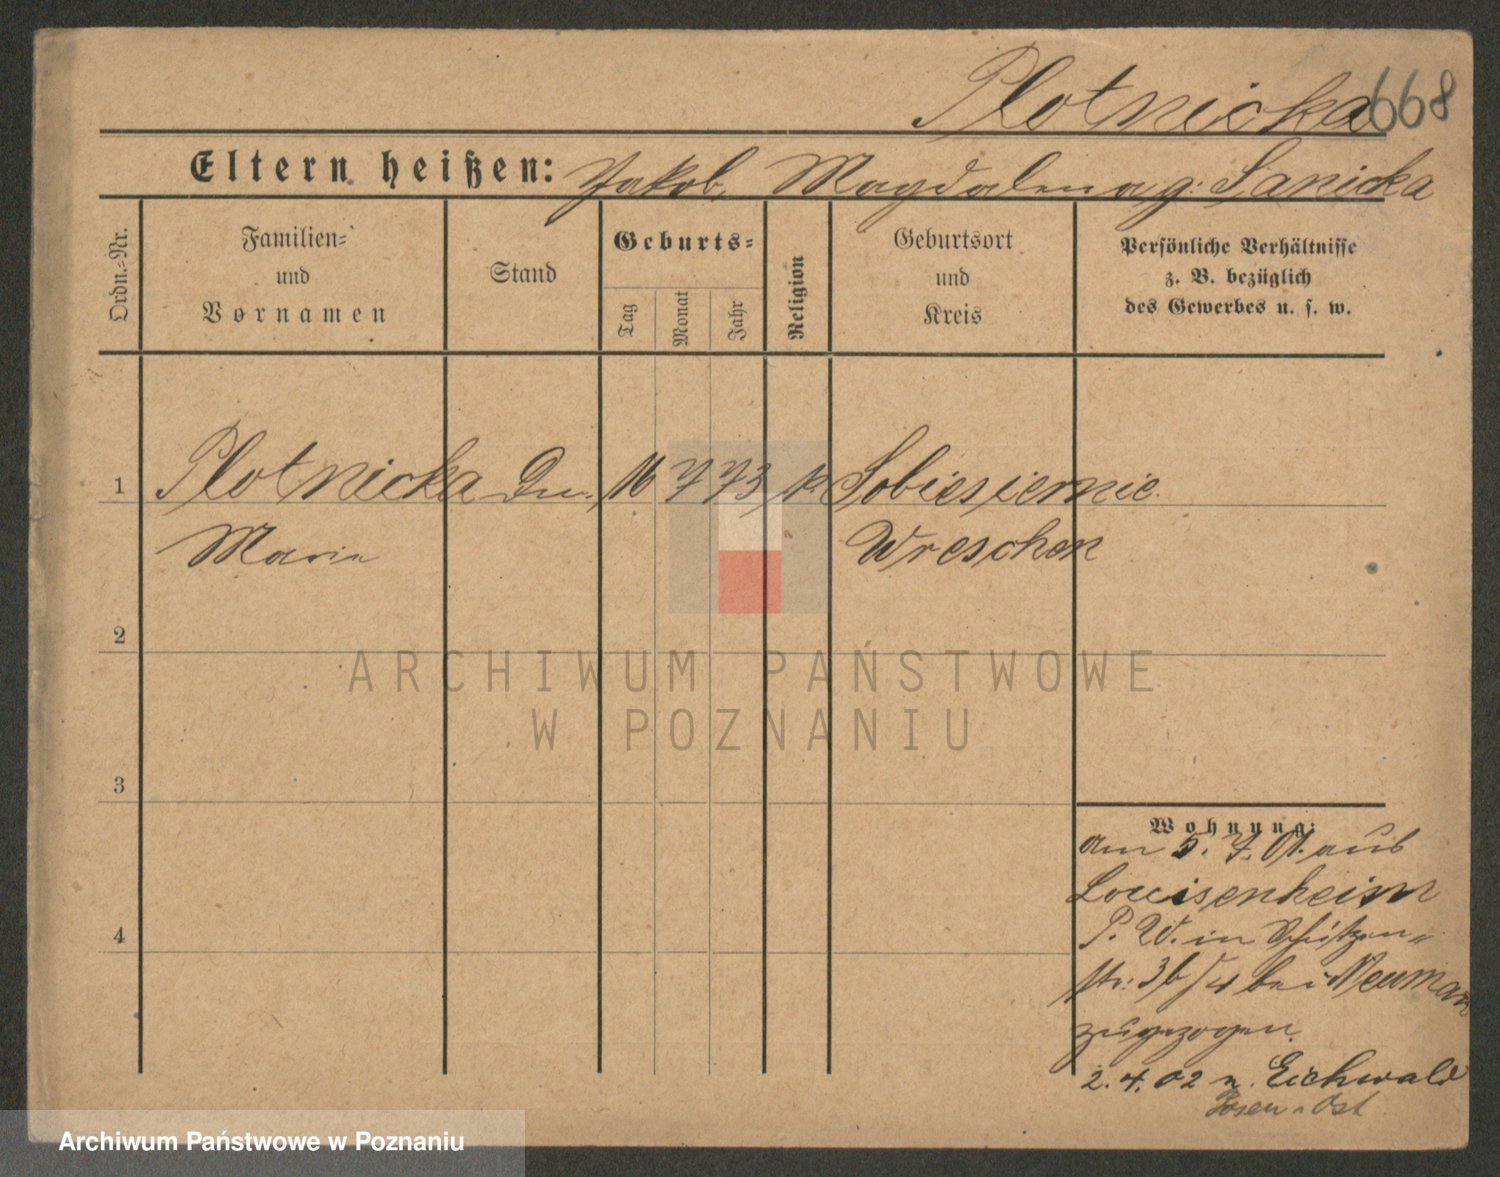 Plotnicka 668
Eltern heißen: Jakob, Magdalena g: Sanicka
Ordn.-Nr.
Familien-
und
Vornamen
Stand
Geburts-
Tag
Monat
Jahr
Religion
Geburtsort
und
Kreis
Persönliche Verhältnisse
z. B. bezüglich
des Gewerbes u. s. w.
1 Plotnicka 16 7 73 k Sobiesiernie.
Marie Wreschen
2
ARCHIWUM PAŃSTWOWE
W POZNANIU
3
Wohnung:
am 5. 7. 01. aus
4
Louisenheim
P. W. in Schützen-
str: 36/4 bei Neumann
zugezogen.
2. 4. 02 n. Eichwald
Posen-Ost
Archiwum Państwowe w Poznaniu